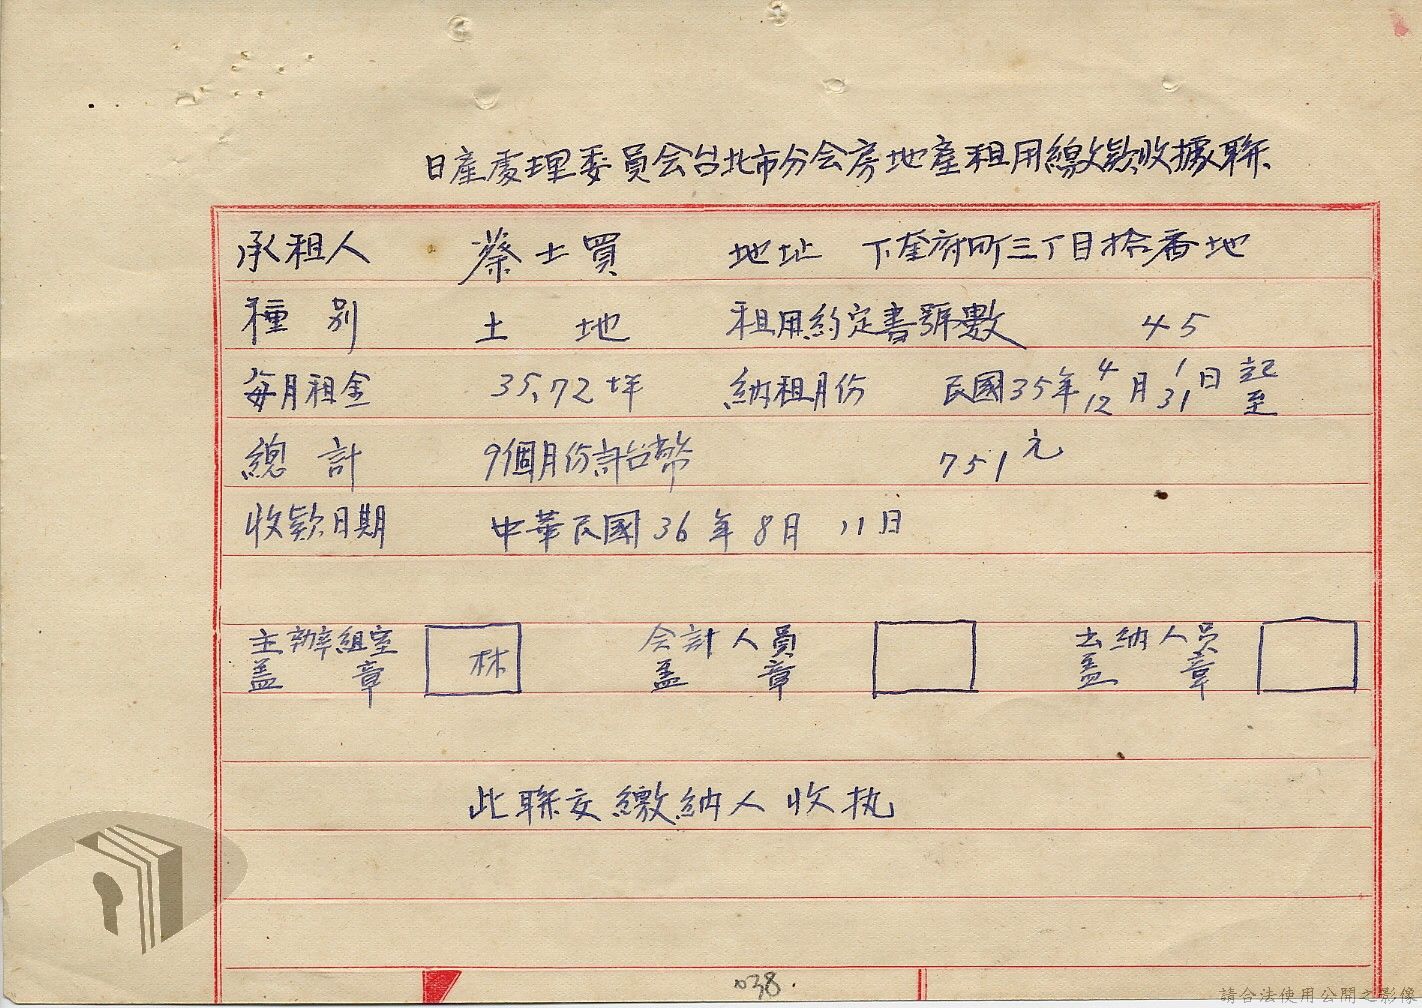 日產處理委員会台北市分会房地產租用繳款收據聯
承租人 蔡士買 地址 下奎府町三丁目拾番地
種別 土地 租用約定書號數 45
每月租金 35.72坪 納租月份 民國35年 4 月 1 日 起
12 31 至
總計 9個月份計台幣 751元
收款日期 中華民國36年8月11日
主辦組室 林 会計人員 出納人員
盖章 盖章 盖章
此聯交繳納人收执
038
請合法使用公開之影像